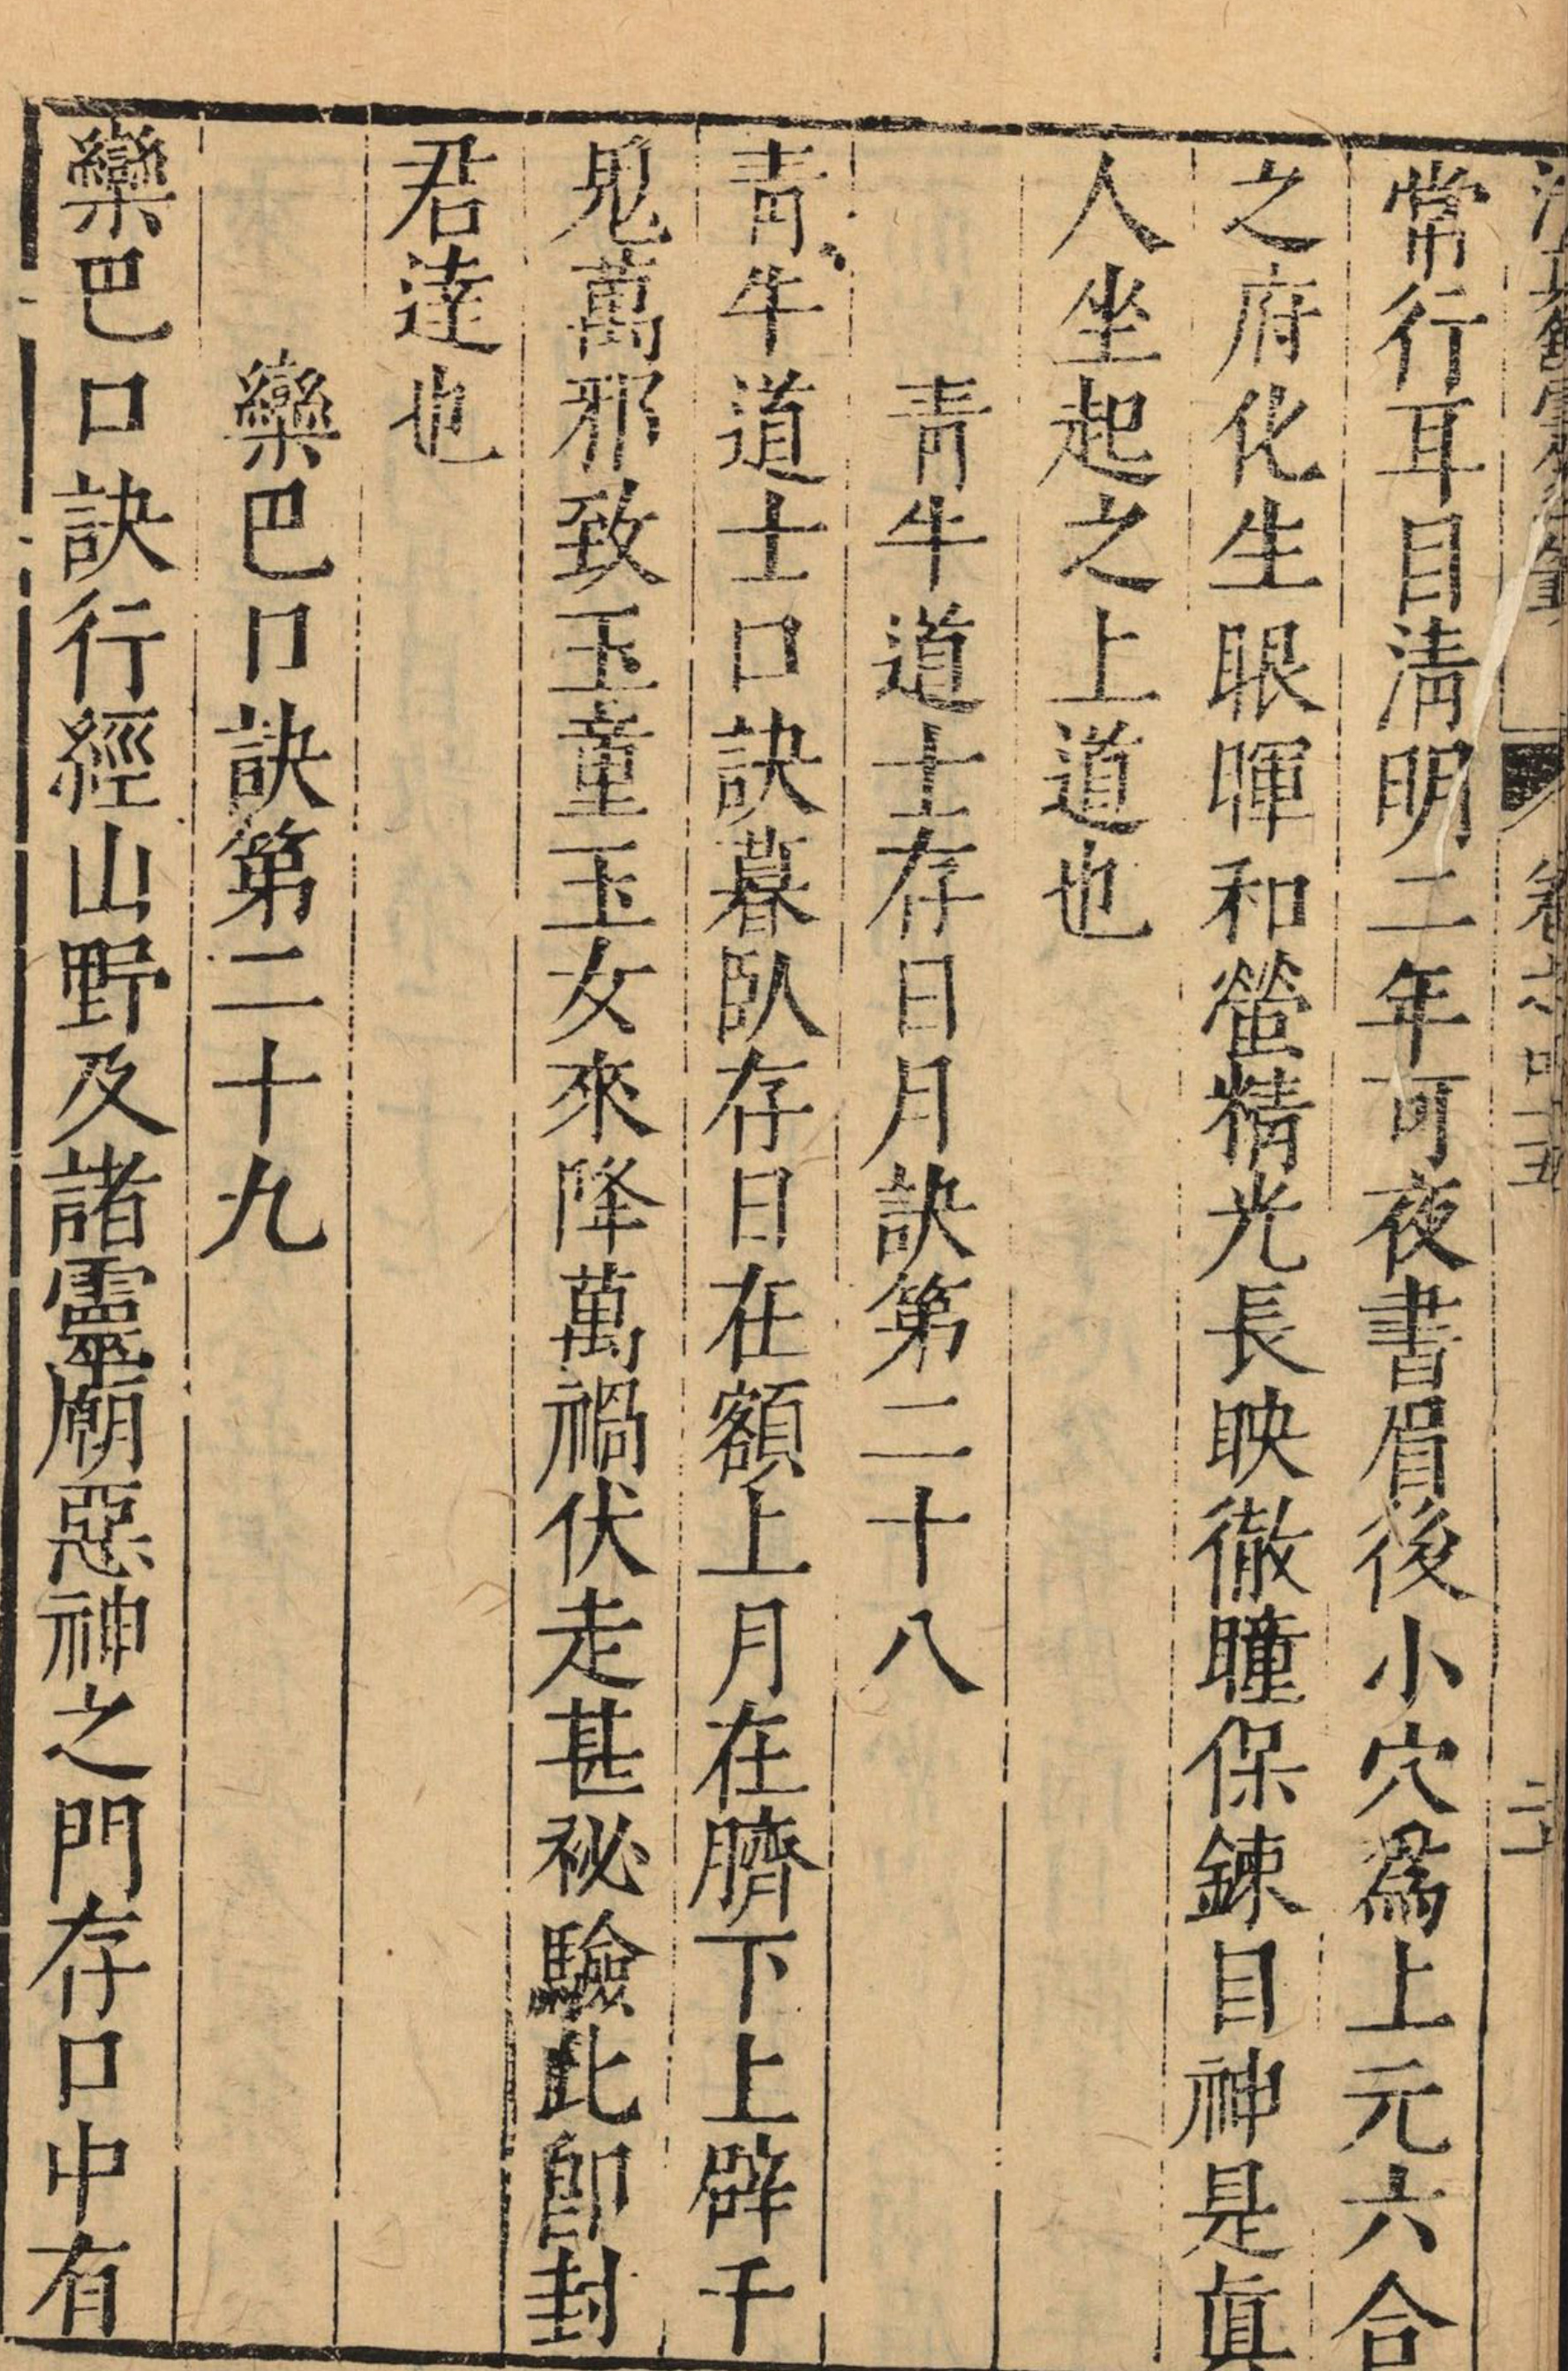 常行耳目淸明二年可夜書眉後小穴爲上元六合
之府化生眼暉和螢精光長映徹瞳保鍊目神是眞
人坐起之上道也
青牛道士存日月訣第二十八
青牛道士口訣暮臥存日在額上月在臍下上辟千
鬼萬邪致玉童玉女來降萬禍伏走甚祕驗此卽封
君逹也
欒巴口訣第二十九
欒巴口訣行經山野及諸靈廟惡神之門存口中有